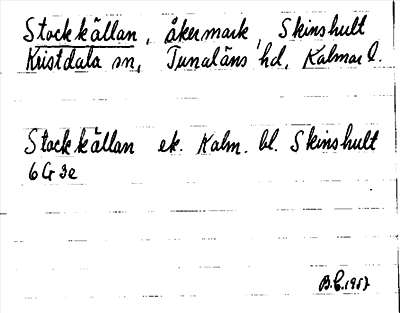 Stockkällan, åkermark, Skinshult
Kristdala sn, Tunaläns hd, Kalmar l.
Stockkällan ek. Kalm. bl. Skinshult
6G3e